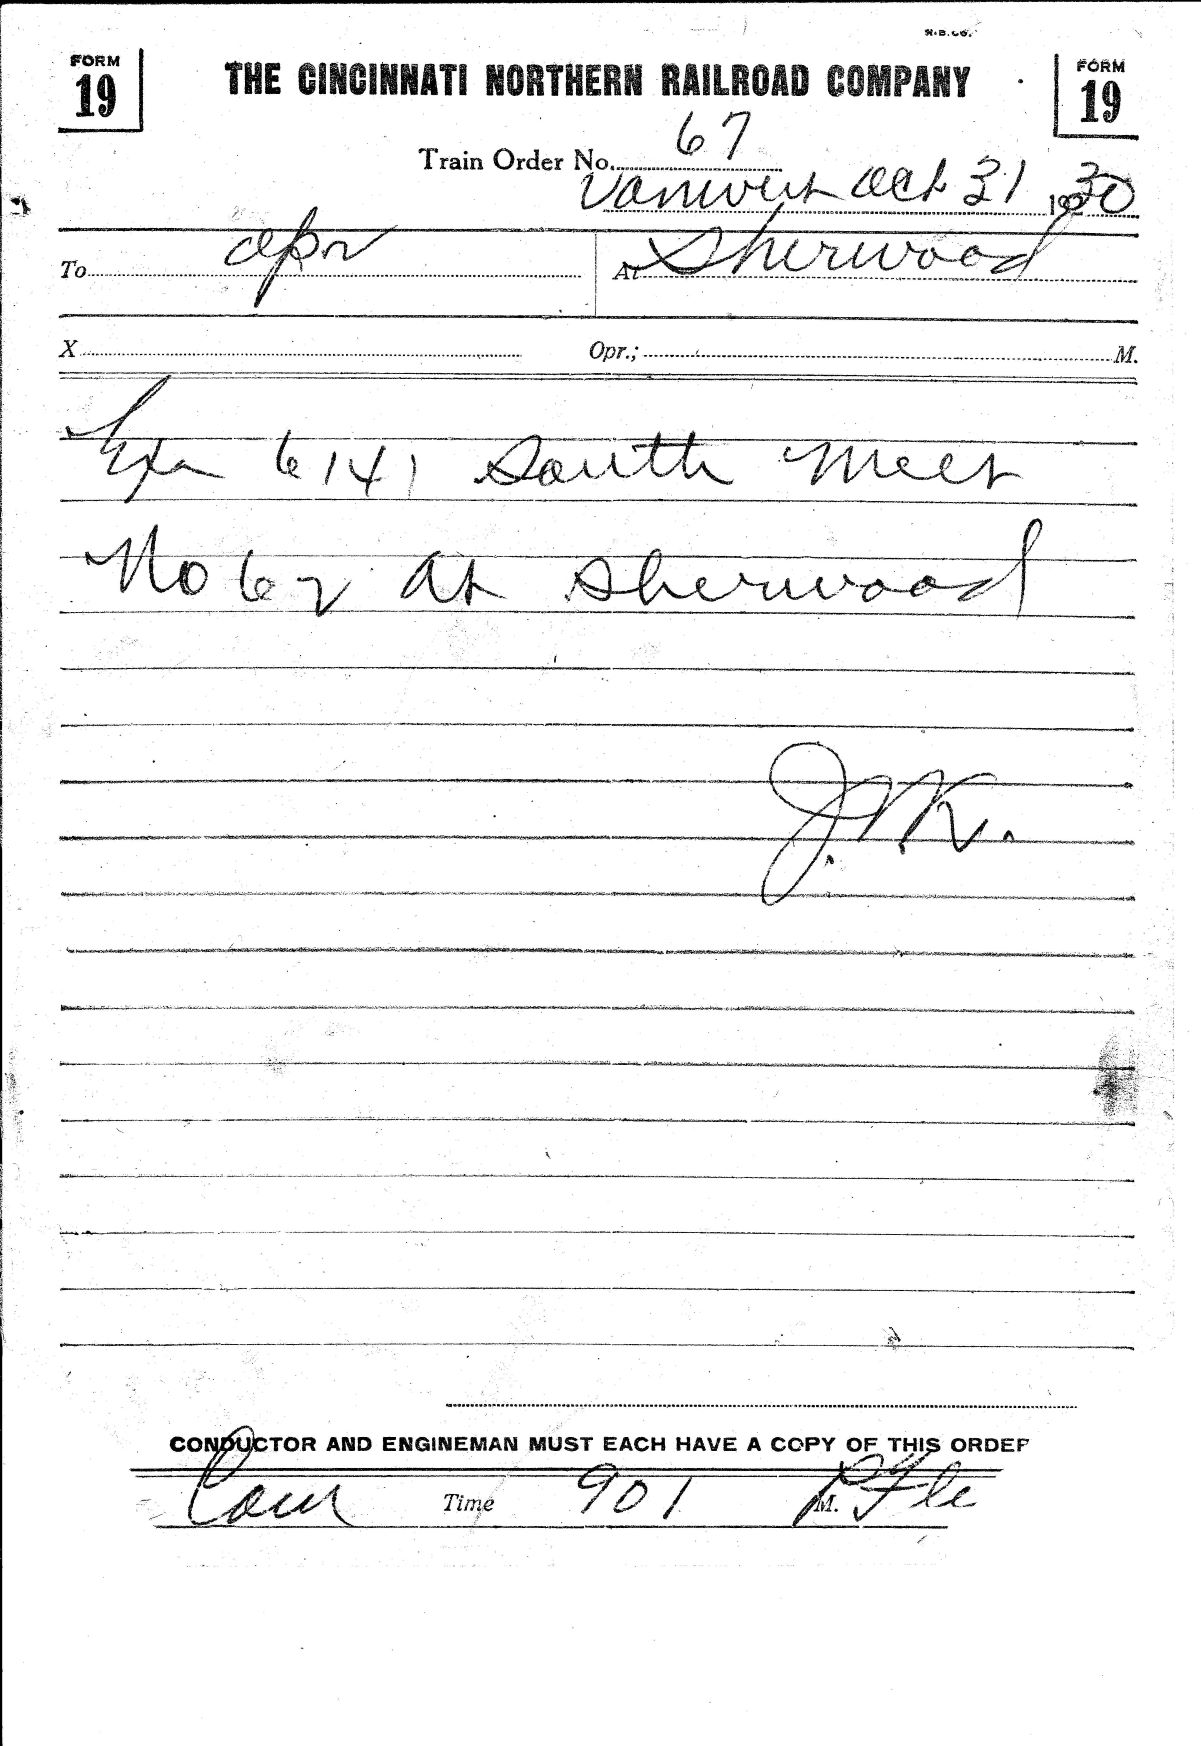 FORM 19 THE CINCINNATI NORTHERN RAILROAD COMPANY FORM 19
Train Order No. 67
Vanwert Oct 31 1930
To opr At Sherwood
X Opr.; M.
Exa 6141 South Meet
No 62 at Sherwood
J.W.K.
CONDUCTOR AND ENGINEMAN MUST EACH HAVE A COPY OF THIS ORDER
Com Time 901 P M.